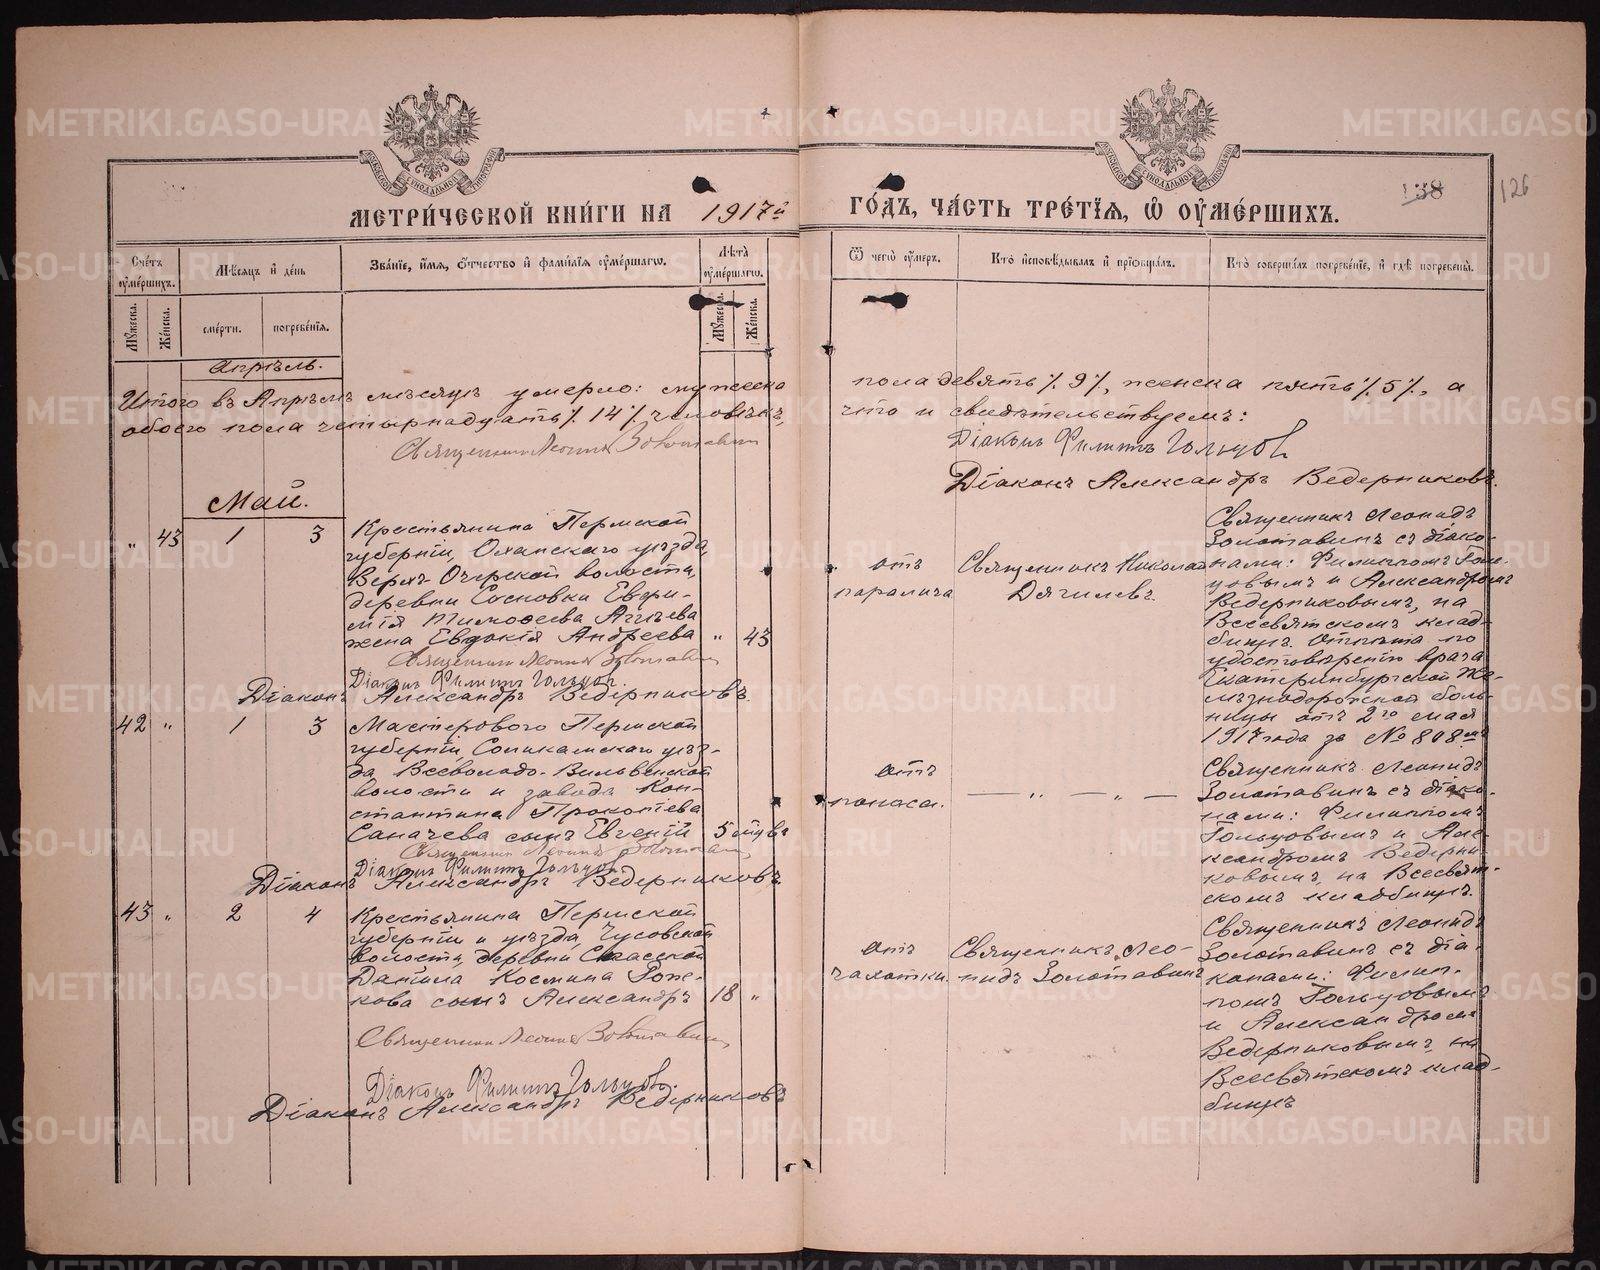 МЕТРИ́ЧЕСКОЙ КНИ́ГИ НА 1917й ГО́ДЪ, ЧА́СТЬ ТРЕ́ТІѦ, Ѿ ОУМЕ́РШИХЪ.
138 126
Сче́тъ оуме́ршихъ.
Мѣсѧцъ и҆ де́нь
Зва́нїе, и҆мѧ, ѻ҆́тчество и҆ фами́лїѧ оуме́ршагѡ.
Лѣта̀ оуме́ршагѡ.
Ѿ чегѡ̀ оу҆́меръ.
Кто̀ и҆сповѣ́дывалъ и҆ прїѡбща́лъ.
Кто̀ соверша́лъ погребе́нїе, и҆ гдѣ̀ погребены̀.
Мꙋ́жеска.
Же́нска.
сме́рти.
погребе́нїѧ.
Мꙋ́жеска.
Же́нска.
Апрѣль.
Итого въ Апрѣлѣ мѣсяцѣ умерло: мужеска
обоего пола четырнадцать /. 14 /. человѣкъ,
Священникъ Леонидъ Золотавинъ
пола девять /. 9 /., женска пять /. 5 /., а
что и свидѣтельствуемъ:
Діаконъ Филиппъ Гольцовъ
Діаконъ Александръ Ведерниковъ.
Май.
„ 43 1 3
Крестьянина Пермской
губерніи, Оханскаго уѣзда,
Верх-Очерской волости,
деревни Сосновки Евфи-
мія Тимофеева
жена Евдокія Андреева „ 43
Священникъ Леонидъ Золотавинъ
Діаконъ Филиппъ Гольцовъ.
Діаконъ Александръ Ведерниковъ.
отъ
паралича
Священникъ Николай
Дягилевъ.
Священникъ Леонидъ
Золотавинъ съ діако-
нами: Филиппомъ Голь-
цовымъ и Александромъ
Ведерниковымъ, на
Всесвятскомъ клад-
бищѣ. Отпѣта по
удостовѣренію врача
Екатеринбургской же-
лѣзнодорожной боль-
ницы отъ 2го мая
1917 года за № 808мъ
42 „ 1 3
Мастерового Пермской
губерніи, Соликамскаго уѣз-
да Всеволодо-Вильвенской
волости и завода Кон-
стантина Прокопіева
Саначева сынъ Евгеній 5 мцвъ
Священникъ Леонидъ Золотавинъ
Діаконъ Филиппъ Гольцовъ
Діаконъ Александръ Ведерниковъ.
отъ
поноса.
— „ — „ —
Священникъ Леонидъ
Золотавинъ съ діако-
нами: Филиппомъ
Гольцовымъ и Але-
ксандромъ Ведерни-
ковымъ, на Всесвят-
скомъ кладбищѣ.
43 „ 2 4
Крестьянина Пермской
губерніи и уѣзда, Чусовской
волости, деревни Спасской
Даніила Космина
сынъ Александръ 18 „
Священникъ Леонидъ Золотавинъ
Діаконъ Филиппъ Гольцовъ.
Діаконъ Александръ Ведерниковъ
отъ
чахотки.
Священникъ Лео-
нидъ Золотавинъ
Священникъ Леонидъ
Золотавинъ съ діа-
конами: Филип-
помъ Гольцовымъ
и Александромъ
Ведерниковымъ, на
Всесвятскомъ клад-
бищѣ
METRIKI.GASO-URAL.RU